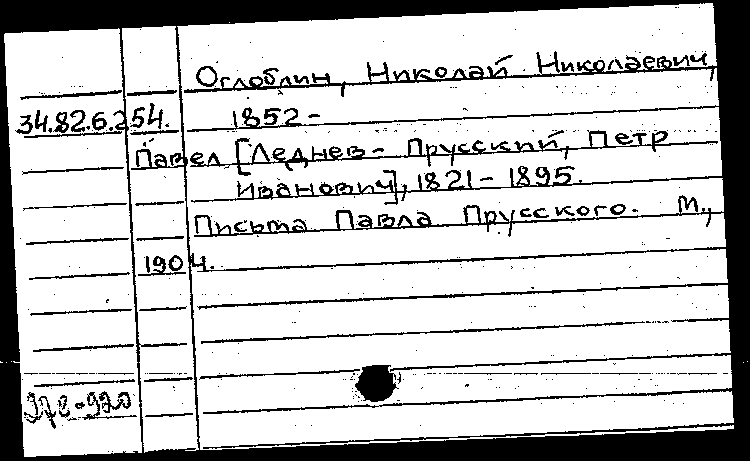 Оглоблин, Николай Николаевич,
34.82.6.254. 1852 -
Павел [Леднев - Прусский, Петр
Иванович], 1821 - 1895.
Письма Павла Прусского. М.,
1904.